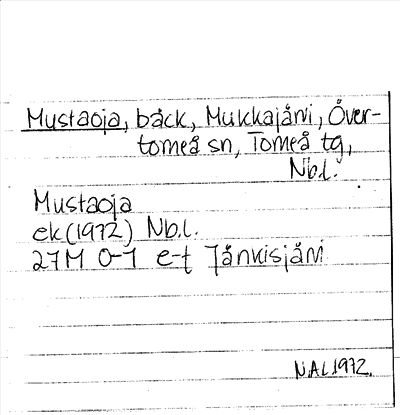 Mustaoja, bäck, Mukkajärvi, Över-
torneå sn, Torneå tg,
Nb.l.
Mustaoja
ek (1972) Nb.l.
27M 0-1 e-f Jänkisjärvi
NAL 1972.